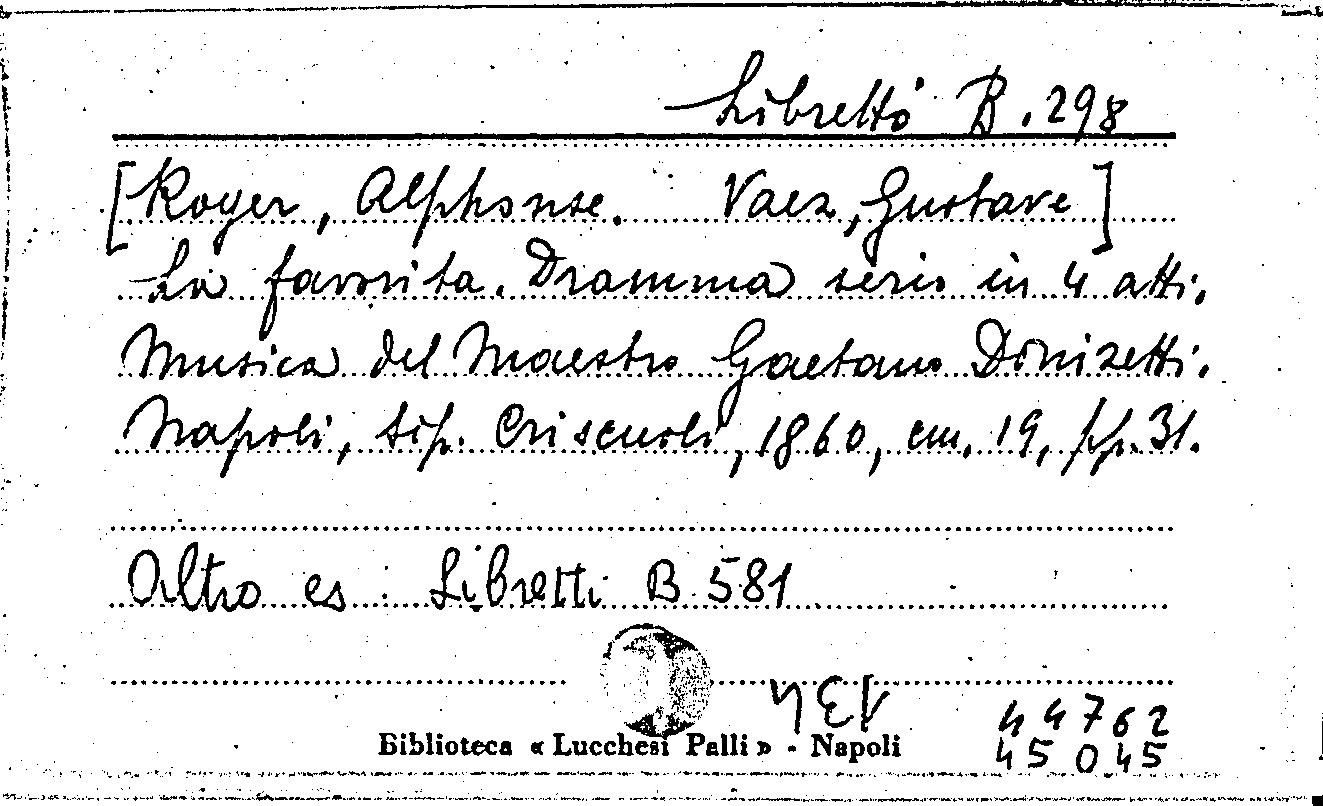 Libretto B.298
[Royer, Alphonse. Vaez, Gustave]
La favorita. Dramma serio in 4 atti.
Musica del Maestro Gaetano Donizetti.
Napoli, tip. Criscuoli, 1860, cm. 19, pp. 31.
Altro es. Libretti B 581
44762
Biblioteca « Lucchesi Palli » - Napoli
45045